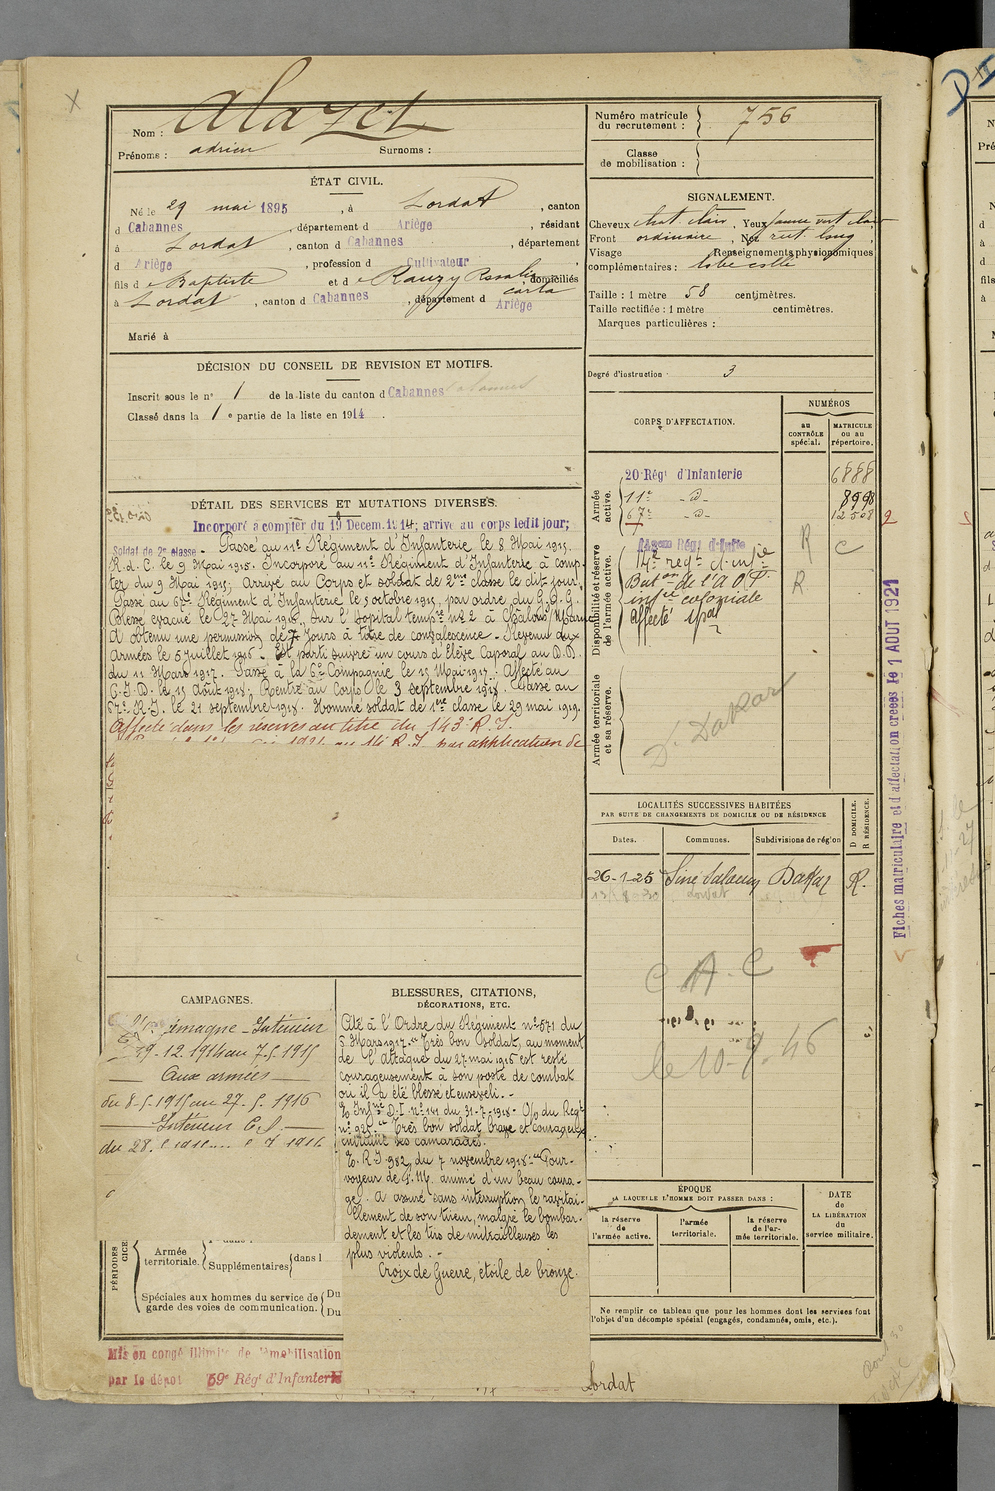 Nom : Alazet
Prénoms : adrien Surnoms :
ÉTAT CIVIL.
Né le 29 mai 1895, à Lordat, canton
d Cabannes, département d Ariège, résidant
à Lordat, canton d Cabannes, département
d Ariège, profession d Cultivateur,
fils d Baptiste et d Rauzy Rosalie, domiciliés
à Lordat, canton d Cabannes, département d Ariège
Marié à
DÉCISION DU CONSEIL DE REVISION ET MOTIFS.
Inscrit sous le n° 1 de la liste du canton d Cabannes
Classé dans la 1 e partie de la liste en 1914.
DÉTAIL DES SERVICES ET MUTATIONS DIVERSES.
Incorporé à compter du 19 Décem. 1914; arrivé au corps ledit jour;
Soldat de 2e classe - Passé au 11e Régiment d'Infanterie le 8 Mai 1915.
R. d. C. le 9 Mai 1915. Incorporé au 11e Régiment d'Infanterie à comp-
ter du 9 Mai 1915; Arrivé au Corps et soldat de 2ème classe le dit jour.
Passé au 67e Régiment d'Infanterie le 5 octobre 1915, par ordre du G.Q.G.
Blessé évacué le 27 Mai 1916. Sur l'hopital temp.re n° 2 à Châlons s/Marne
A obtenu une permission de 7 Jours à titre de convalescence - Revenu aux
Armées le 5 Juillet 1916 - Est parti suivre un cours d'élève Caporal au D.D.
du 11 Mars 1917. Passé à la 6e Compagnie le 15 Mai 1917. Affecté au
C.I.D. le 15 Août 1918. Rentré au Corps le 3 septembre 1918. Passé au
67e R.I. le 21 septembre 1918. Nommé soldat de 1ère classe le 29 mai 1919.
Affecté dans les réserves au titre du 143e R.I.
R.I. par application de
CAMPAGNES.
Intérieur
19-12-1914 au 7.5.1915
Aux armées
du 8-5-1915 au 27-5-1916
Intérieur
du 28.
PÉRIODES
Armée territoriale.
Supplémentaires dans l
Spéciales aux hommes du service de
garde des voies de communication.
Du
Du
Mis en congé illimité de démobilisation
par le dépot 59e Régt d'Infanterie
BLESSURES, CITATIONS,
DÉCORATIONS, ETC.
Cité à l'Ordre du Régiment n° 571 du
5 Mars 1917. "Très bon soldat, au moment
de l'attaque du 27 mai 1916 est resté
courageusement à son poste de combat
où il a été blessé et enseveli. -
n° 141 du 31-7-1918 - O/o du Regt
n° 925 - "Très bon soldat brave et courageux
ses camarades.
R.I 982 du 7 novembre 1918: "Pour-
voyeur de F.M. animé d'un beau coura-
ge. A assuré sans interruption le ravitai-
llement de son tireur, malgré le bombar-
dement et les tirs de mitrailleuses les
plus violents. -
Croix de Guerre, étoile de bronze.
Numéro matricule
du recrutement : 756
Classe
de mobilisation :
SIGNALEMENT.
Cheveux chat clair, Yeux jaune vert clair
Front ordinaire, Nez rect long,
Visage Renseignements physionomiques
complémentaires : lobe collé
Taille : 1 mètre 58 centimètres.
Taille rectifiée : 1 mètre centimètres.
Marques particulières :
Degré d'instruction : 3
CORPS D'AFFECTATION.
NUMÉROS
au CONTRÔLE spécial.
MATRICULE ou au répertoire.
Armée active.
20 Régt d'Infanterie 6888
11e -d- 8998
67e -d- 12508
Disponibilité et réserve de l'armée active.
Régt d'Infie R C
14e regt d'infie
Baton de l'A O F R
infie coloniale
Affecté spal
Armée territoriale et sa réserve.
D. Dakar
LOCALITÉS SUCCESSIVES HABITÉES
PAR SUITE DE CHANGEMENTS DE DOMICILE OU DE RÉSIDENCE
Dates. Communes. Subdivisions de région
D DOMICILE. R RÉSIDENCE.
26-1-25 Siné Saloum Dakar R.
Lordat
C A. C
le 10-9-46
ÉPOQUE
A LAQUELLE L'HOMME DOIT PASSER DANS :
la réserve de l'armée active.
l'armée territoriale.
la réserve de l'armée territoriale.
DATE de LA LIBÉRATION du service militaire.
Ne remplir ce tableau que pour les hommes dont les services font
l'objet d'un décompte spécial (engagés, condamnés, omis, etc.).
Lordat
Fiches matriculaire et d'affectation créées le 1 AOUT 1921